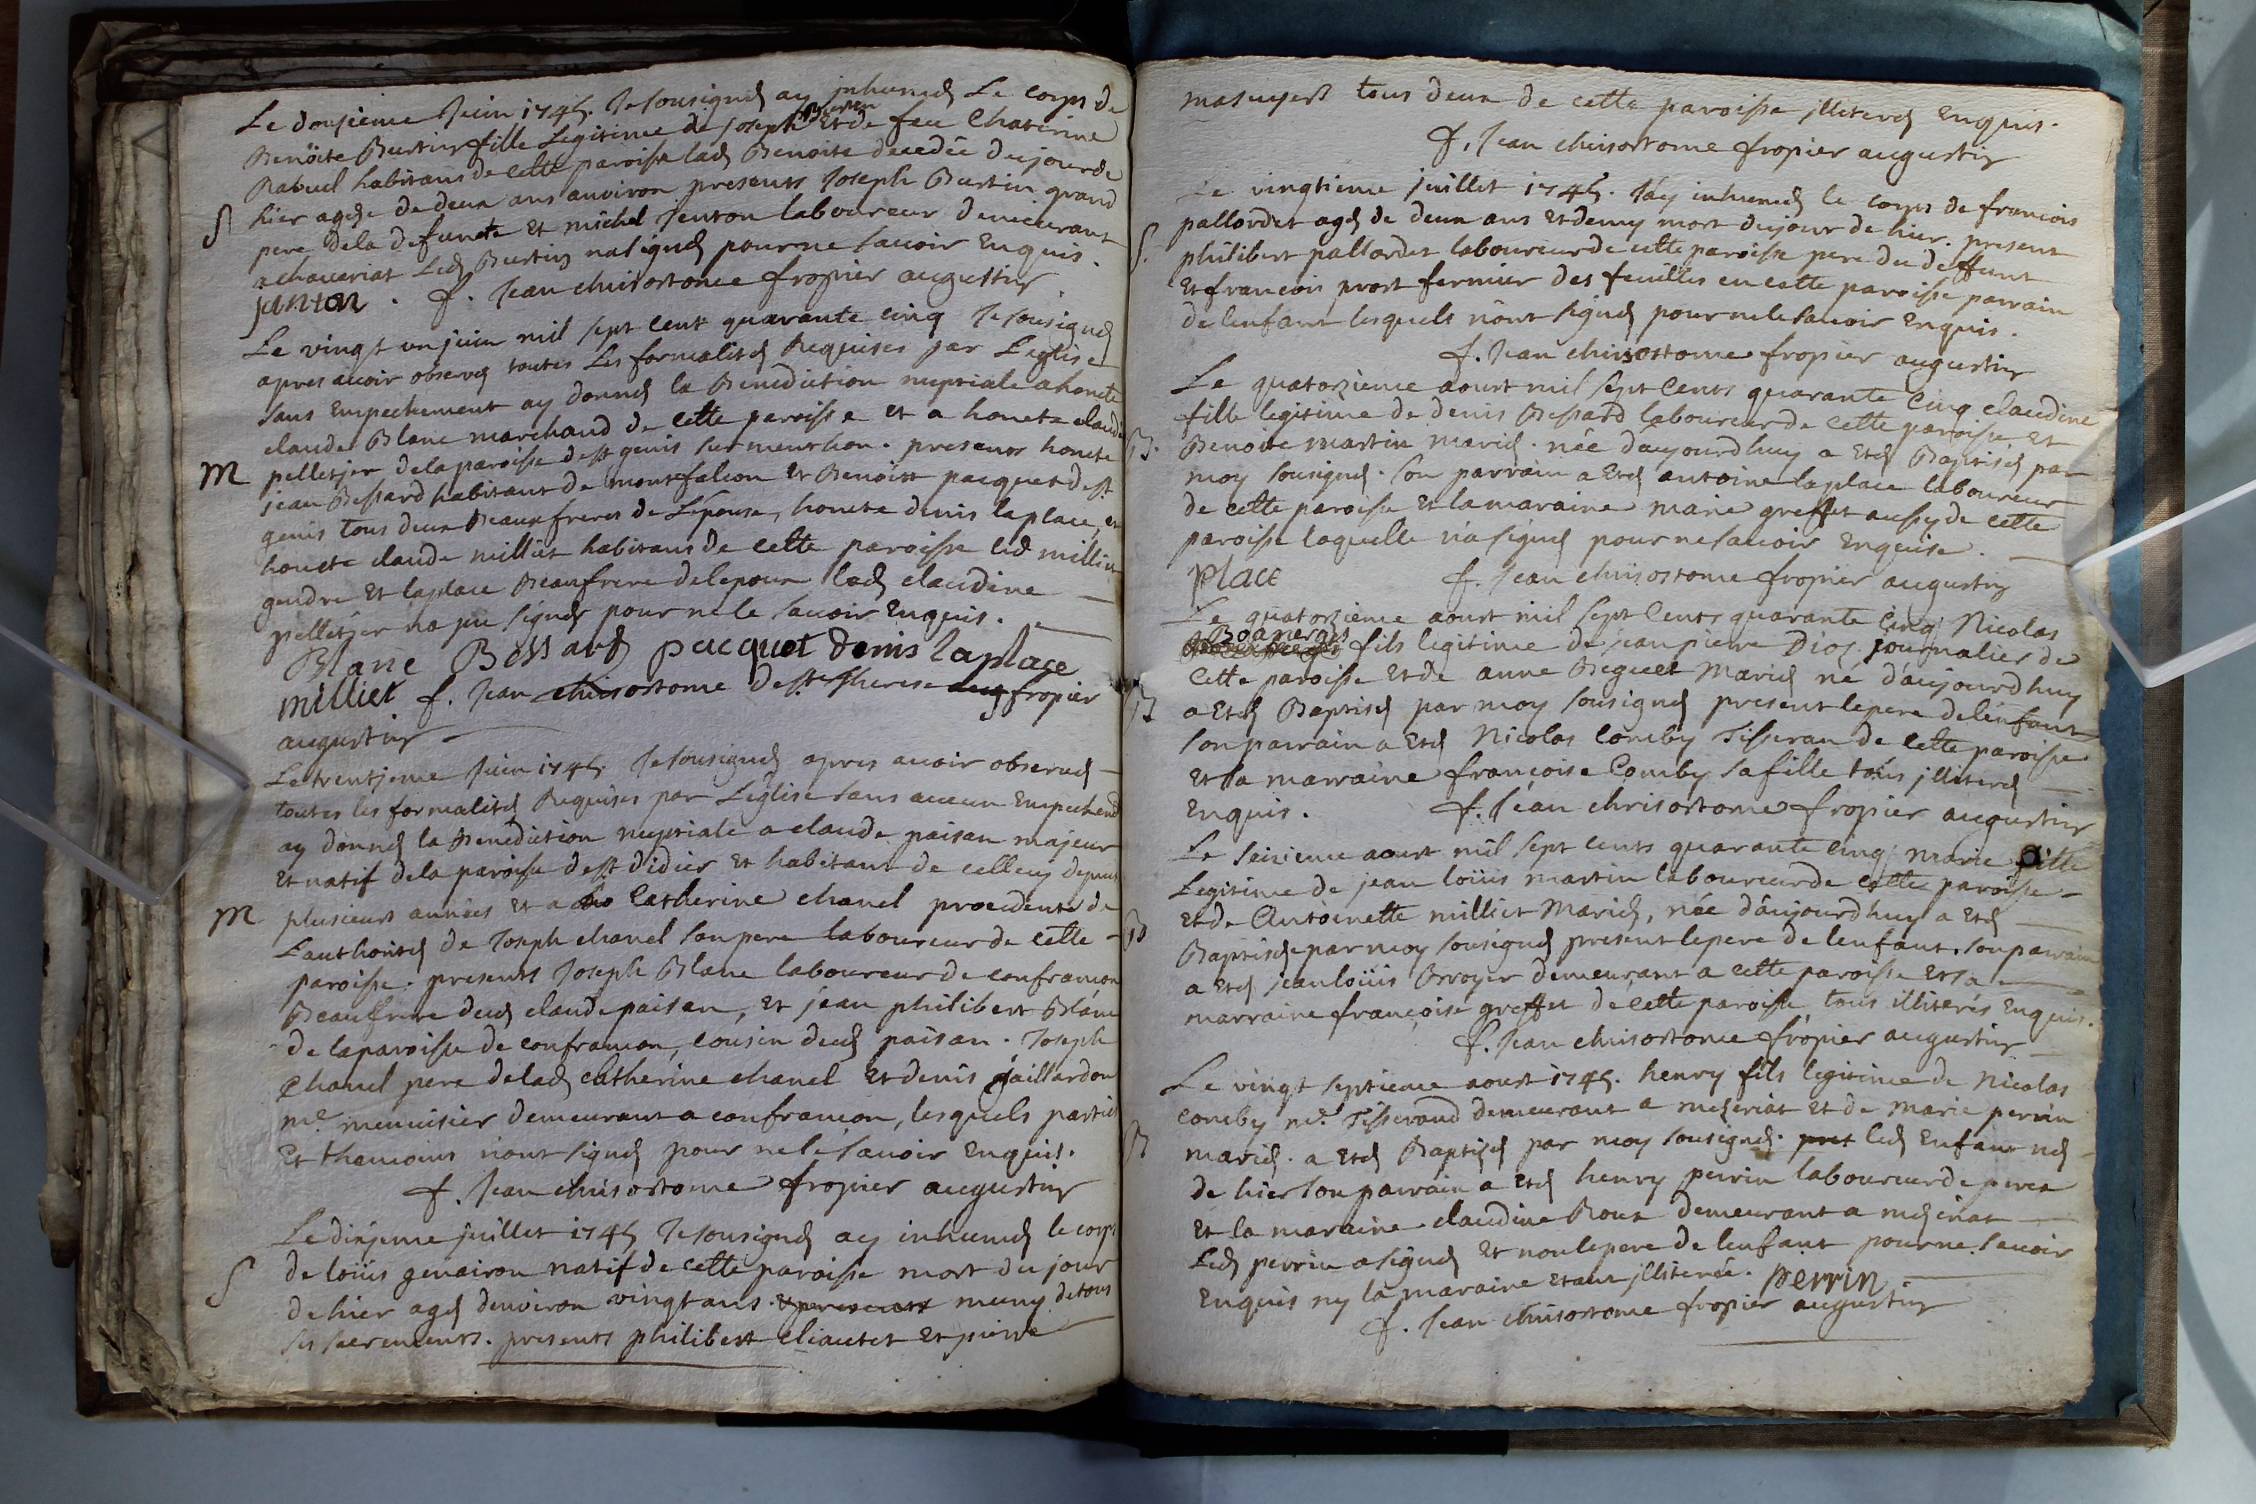 Le douzieme Juin 1745. Je sousigné ay inhumé Le corps de
Benoite Burtin fille Legitime de Joseph Burtin Et de feu Chaterine
Rabuel habitans de cette paroisse lad Benoite decedée du jour de
hier agée de deux ans anviron presents Joseph Burtin grand
S pere de la defuncte Et michel Jenton laboureur demeurant
a chaveriat Led Burtin na signé pour ne savoir Enquis.
janton . f. Jean chrisostome fropier augustin
Le vingt un juin mil sept cent quarante cinq Je sousigné
apres avoir observé toutes Les formalités Requises par L'eglise
sans Empechement ay donné la Benediction nuptiale a honete
claude Blanc marchand de cette paroisse et a honete claudine
M pelletier de la paroisse de st genis sur menthon. presents honete
jean Bessard habitant de montfalcon Et Benoitt pacquet de st
genis tous deux Beaux freres de L'epouse, honete denis laplace, et
honete claude milliet habitans de cette paroisse led milliet
gendre Et laplace Beaufrere de lepoux lad claudine
pelletier na pu signer pour ne le savoir Enquis.
Blanc Bessard pacquet denis laplace
milliet f. Jean chrisostome de ste Therese fropier
augustin
Le trentieme Juin 1745 Je sousigné apres avoir observé
toutes les formalités Requises par L'eglise sans aucun Empechemt
ay donné la Benediction nuptiale a claude paisan majeur
Et natif de la paroisse de st didier Et habitant de celle cy depuis
M plusieurs années Et a Catherine chanel procedente de
L'authorité de Joseph chanel son pere laboureur de cette
paroisse. presents Joseph Blanc laboureur de confrancon
Beaufrere dud claude paisan, Et jean philibert Blanc
de la paroisse de confrancon, cousin dud paisan. Joseph
Chanel pere de lad catherine chanel Et denis gaillardon
me menuisier demeurant a confrancon, lesquels parties
Et themoins n'ont signé pour ne le savoir Enquis.
f. Jean chrisostome fropier augustin
Le dixieme juillet 1745 Je sousigné ay inhumé le corps
S de loüis genairon natif de cette paroisse mort du jour
de hier agé denviron vingt ans muny de tous
ses sacrements. presents philibert cliautet Et pierre
masuyer tous deux de cette paroisse illiterés Enquis.
f. Jean chrisostome fropier augustin
Le vingtieme juillet 1745. J'ay inhumé le corps de francois
pallordet agé de deux ans Et demy mort du jour de hier. present
S. philibert pallordet laboureur de cette paroisse pere du deffunt
Et francois prost fermier des feuilles en cette paroisse parrain
de l'enfant lesquels n'ont signé pour ne le savoir Enquis.
f. Jean chrisostome fropier augustin
Le quatorzieme aoust mil sept cents quarante cinq claudine
fille legitime de denis Bessard laboureur de cette paroisse Et
B. Benoite martin mariés. née d'aujourd'huy a Eté Baptisée par
moy sousigné. son parrain a Eté antoine laplace laboureur
de cette paroisse Et la maraine marie greffet aussy de cette
paroisse laquelle n'a signé pour ne savoir Enquise.
place f. Jean chrisostome fropier augustin
Le quatorzieme aoust mil sept cents quarante cinq Nicolas
Boanerges fils legitime de jean pierre Dioz journalier de
cette paroisse Et de anne Beguet Mariés né d'aujourd'huy
B a Eté Baptisé par moy sousigné present le pere de l'enfant
son parrain a Eté Nicolas comby Tisseran de cette paroisse
Et sa marraine francoise Comby sa fille tous illiterés
Enquis. f. Jean chrisostome fropier augustin
Le seizieme aoust mil sept cents quarante cinq marie fille
Legitime de jean loüis martin laboureur de cette paroisse
B Et de Antoinette milliet Mariés, née d'aujourd'huy a Eté
Baptisée par moy sousigné present le pere de l'enfant. son parrain
a Eté jean loüis Broyer demeurant a cette paroisse Et sa
marraine françoise greffet de cette paroisse tous illiterés Enquis.
f. Jean chrisostome fropier augustin
Le vingt septieme aoust 1745. henry fils legitime de Nicolas
comby me Tisserand demeurant a mezeriat Et de marie perrin
B mariés. a Eté Baptisé par moy sousigné. led Enfant né
de hier son parrain a Eté henry perrin laboureur de perex
Et la maraine claudine Roux demeurant a mezeriat
Led perrin a signé Et non le pere de l'enfant pour ne savoir
Enquis ny la maraine Etant illiterée. perrin
f. Jean chrisostome fropier augustin